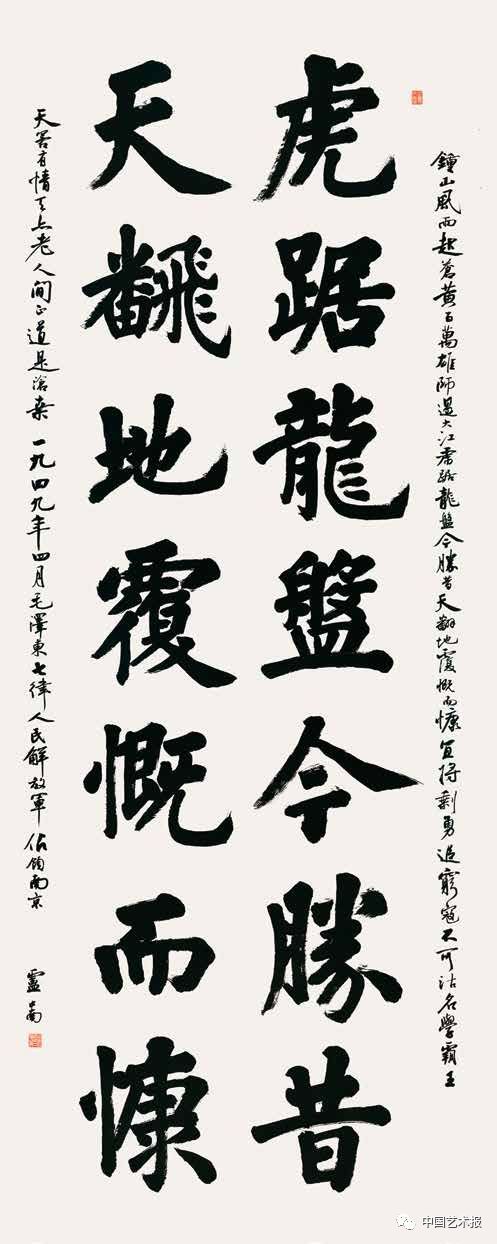 鐘山風雨起蒼黃百萬雄師過大江虎踞龍盤今勝昔天翻地覆慨而慷宜將剩勇追窮寇不可沽名學霸王
虎踞龍盤今勝昔
天飜地覆慨而慷
天若有情天亦老人間正道是滄桑 一九四九年四月毛澤東七律人民解放軍佔領南京 盧中南
中国艺术报